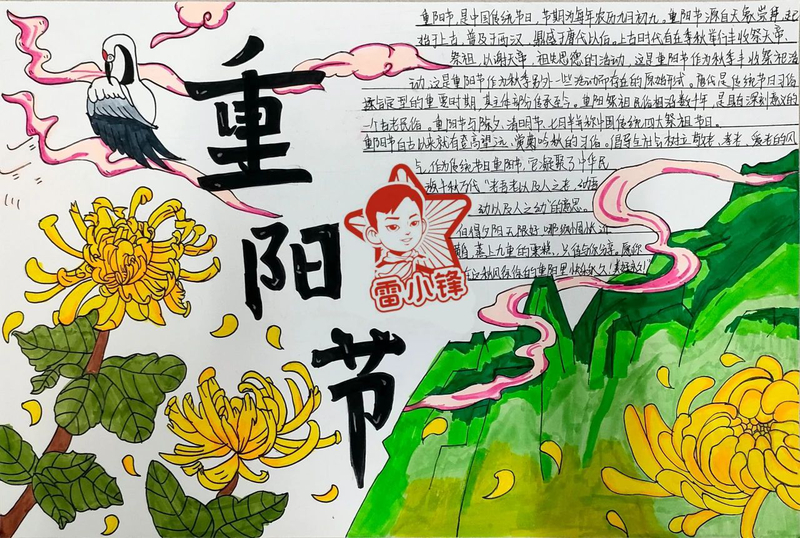 重
阳
节
重阳节,是中国传统节日,节期为每年农历九月初九。重阳节源自天象崇拜,起
始于上古,普及于西汉,鼎盛于唐代以后。上古时代有在季秋举行丰收祭天帝、
祭祖,以谢天帝、祖先恩德的活动,这是重阳节作为秋季丰收祭祖活
动,这是重阳节作为秋季另外一些活动而存在的原始形式。唐代是传统节日习俗
定型的重要时期,其主体部分传承至今。重阳祭祖民俗相沿数千年,是具有深刻意义的
一个古老民俗。重阳节与除夕、清明节、七月半并称中国传统四大祭祖节日。
重阳节自古以来就有登高望远、赏菊吟秋的习俗。倡导全社会树立敬老、孝老、爱老的风
作为传统节日重阳节,它凝聚了中华民
族千秋万代"老吾老以及人之老,幼吾
幼以及人之幼"的意思。
但得夕阳无限好
蒸上九重的
重阳里快乐永久
雷小锋